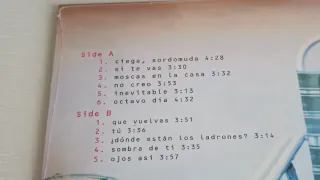 Side A
1. ciega, sordomuda 4:28
2. si te vas 3:30
3. moscas en la casa 3:32
4. no creo 3:53
5. inevitable 3:13
6. octavo día 4:32
Side B
1. que vuelvas 3:51
2. tú 3:36
3. ¿dónde están los ladrones? 3:14
4. sombra de ti 3:35
5. ojos así 3:57